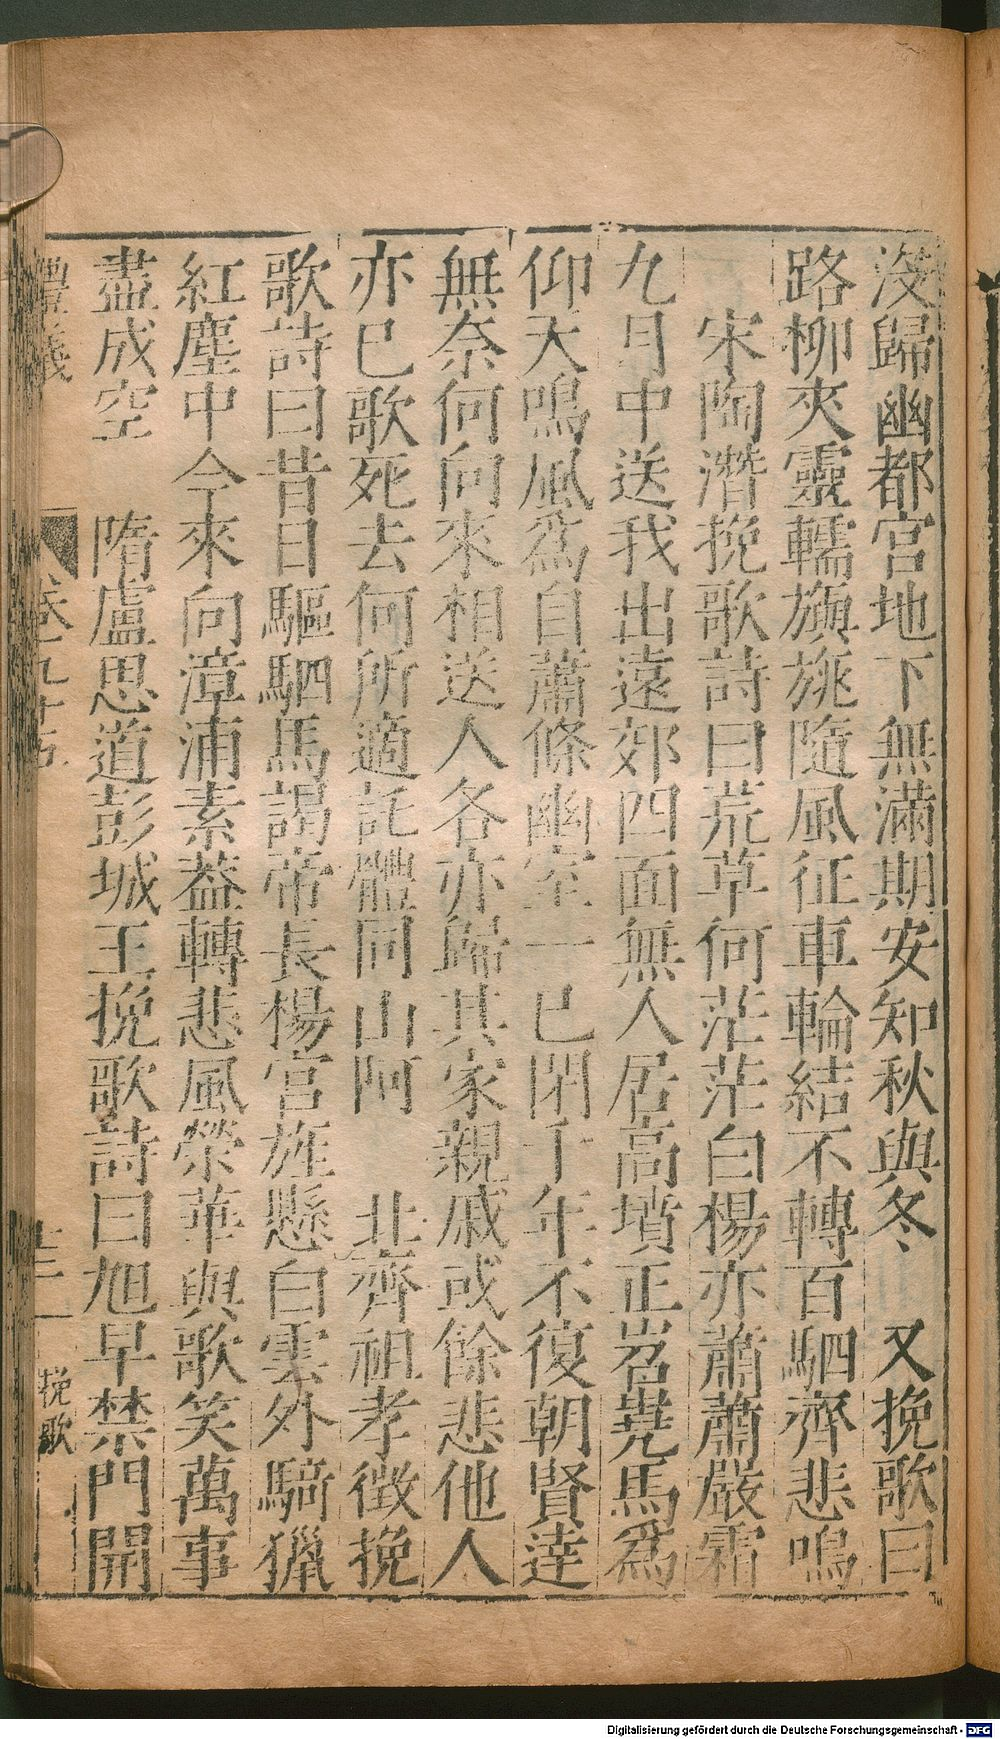 沒歸幽都宮地下無滿期安知秋與冬　又挽歌曰
路柳夾靈轜旟旐隨風征車輪結不轉百駟齊悲鳴
宋陶潛挽歌詩曰荒草何茫茫白楊亦蕭蕭嚴霜
九月中送我出遠郊四面無人居高墳正岧嶤馬爲
仰天鳴風爲自蕭條幽室一已閉千年不復朝賢逹
無奈何向來相送人各亦歸其家親戚或餘悲他人
亦巳歌死去何所適託體同山阿　北齊祖孝徴挽
歌詩曰昔日驅駟馬謁帝長楊宮旌懸白雲外騎獵
紅塵中今來向漳浦素葢轉悲風榮華與歌笑萬事
盡成空　隋盧思道彭城王挽歌詩曰旭旦禁門開
禮義　卷一九十五　十二　挽歌
Digitalisierung gefördert durch die Deutsche Forschungsgemeinschaft - DFG